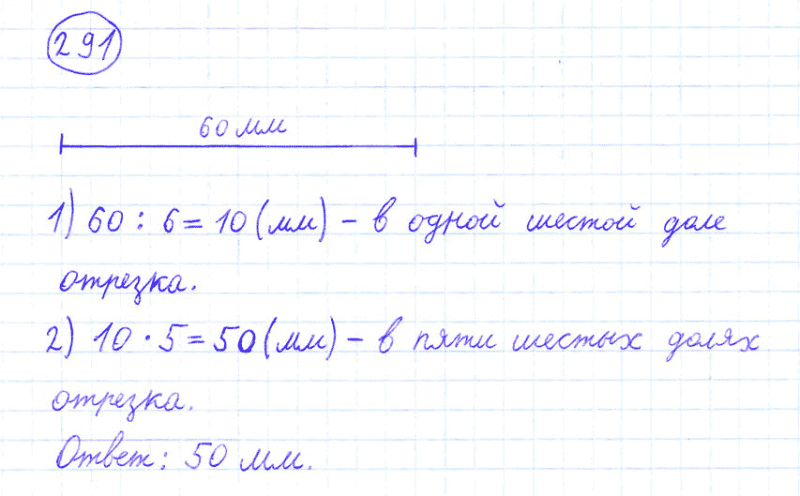 291
60 мм
1) 60 : 6 = 10 (мм) – в одной шестой доле
отрезка.
2) 10 · 5 = 50 (мм) – в пяти шестых долях
отрезка.
Ответ: 50 мм.